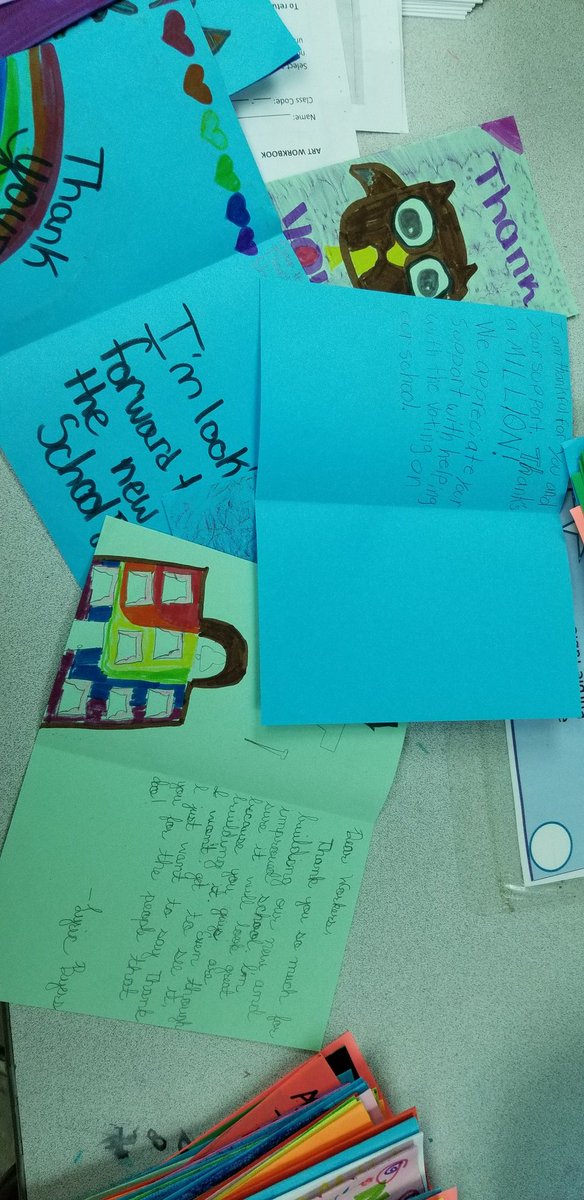 To retu
Select
Class Code:
Name:
ART WORKBOOK
Thank
you
Thank
You
I'm look
forward t
the new
School
I am thankful for you and
your support. Thanks
a MILLION!
We appreciate your
support with helping
with the voting on
our school.
Dear Workers,
Thank you so much for
building our new and
improved school, I'm
sure it will look great
because you
building
I want it. even though
I just get to see it.
you want to say Thank
for the people that
do!